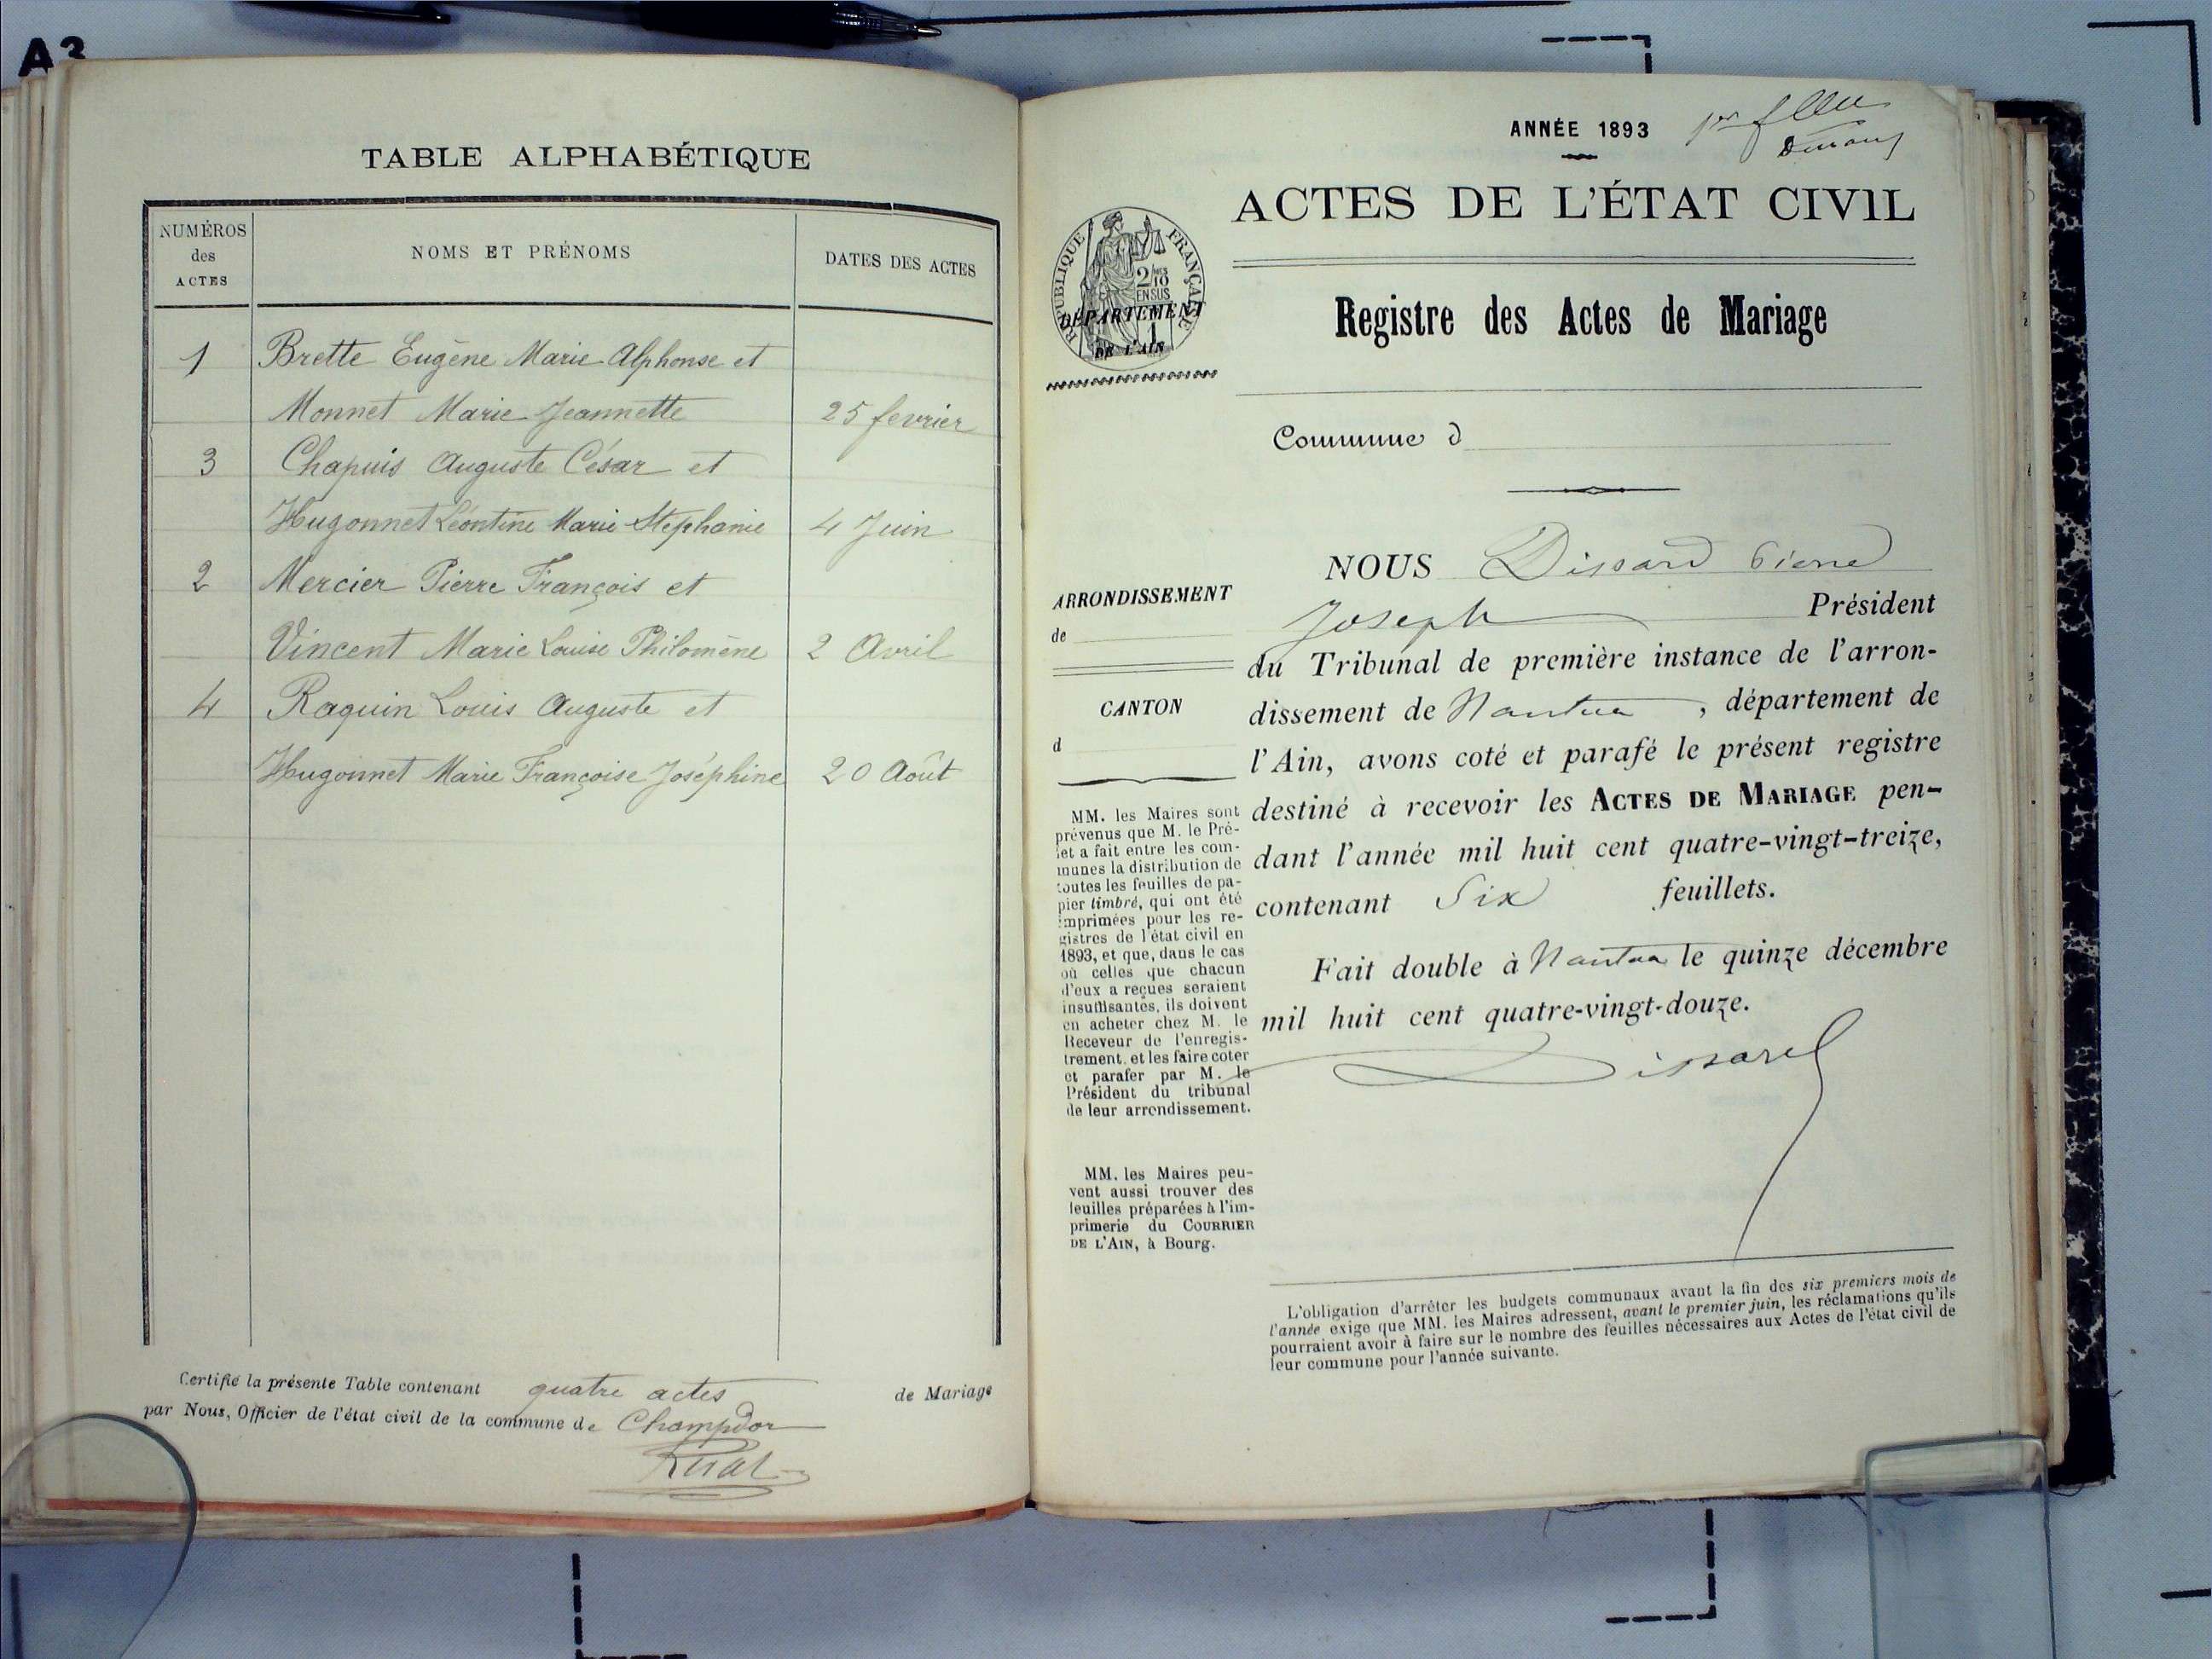 A3
TABLE ALPHABÉTIQUE
NUMÉROS
des
ACTES
NOMS ET PRÉNOMS
DATES DES ACTES
1 Brette Eugène Marie Alphonse et
Monnet Marie Jeannette 25 fevrier
3 Chapuis Auguste César et
Hugonnet Léontine Marie Stéphanie 4 Juin
2 Mercier Pierre François et
Vincent Marie Louise Philomène 2 Avril
4 Raquin Louis Auguste et
Hugonnet Marie Françoise Joséphine 20 Août
Certifié la présente Table contenant quatre actes de Mariage
par Nous, Officier de l'état civil de la commune de Champdor
ANNÉE 1893
ACTES DE L'ÉTAT CIVIL
RÉPUBLIQUE FRANÇAISE
2/10
EN SUS
DÉPARTEMENT
1
DE L'AIN
Registre des Actes de Mariage
Commune d
ARRONDISSEMENT
de
CANTON
d
MM. les Maires sont
prévenus que M. le Pré-
fet a fait entre les com-
munes la distribution de
toutes les feuilles de pa-
pier timbré, qui ont été
imprimées pour les re-
gistres de l'état civil en
1893, et que, dans le cas
où celles que chacun
d'eux a reçues seraient
insuffisantes, ils doivent
en acheter chez M. le
Receveur de l'enregis-
trement, et les faire coter
et parafer par M. le
Président du tribunal
de leur arrondissement.
MM. les Maires peu-
vent aussi trouver des
feuilles préparées à l'im-
primerie du COURRIER
DE L'AIN, à Bourg.
NOUS Dissard Pierre
Joseph Président
du Tribunal de première instance de l'arron-
dissement de Nantua, département de
l'Ain, avons coté et parafé le présent registre
destiné à recevoir les ACTES DE MARIAGE pen-
dant l'année mil huit cent quatre-vingt-treize,
contenant Six feuillets.
Fait double à Nantua le quinze décembre
mil huit cent quatre-vingt-douze.
Dissard
L'obligation d'arrêter les budgets communaux avant la fin des six premiers mois de
l'année exige que MM. les Maires adressent, avant le premier juin, les réclamations qu'ils
pourraient avoir à faire sur le nombre des feuilles nécessaires aux Actes de l'état civil de
leur commune pour l'année suivante.